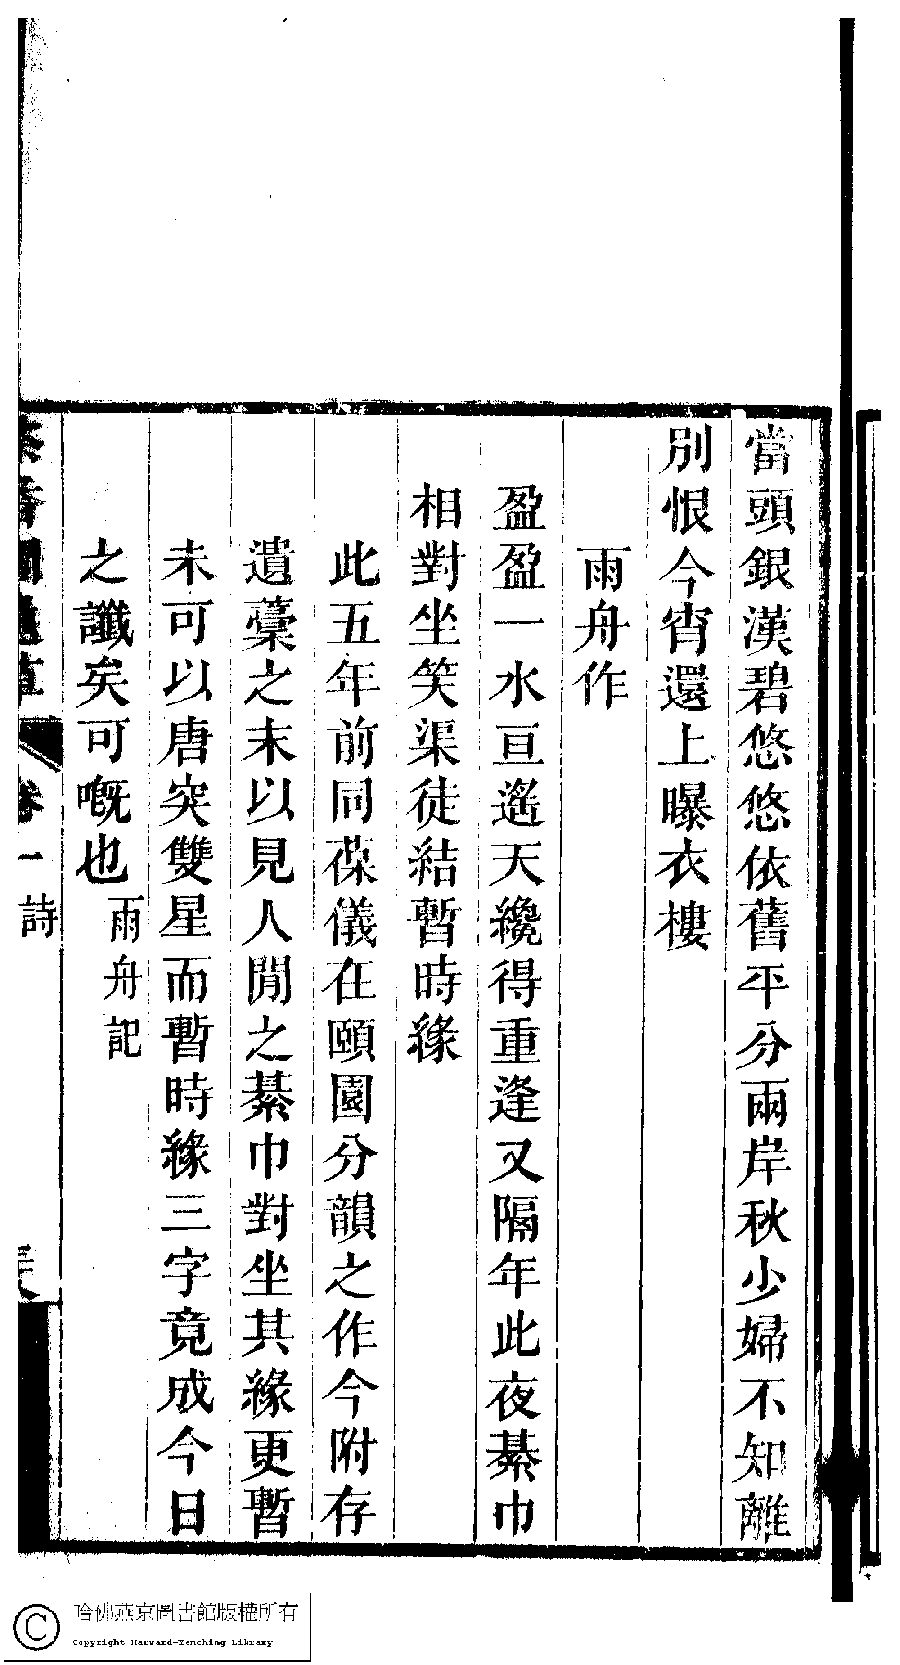 當頭銀漢碧悠悠依舊平分兩岸秋少婦不知離
別恨今宵還上曝衣樓
雨舟作
盈盈一水亘遙天纔得重逢又隔年此夜綦巾
相對坐笑渠徒結暫時緣
此五年前同葆儀在頤園分韻之作今附存
遺藁之末以見人閒之綦巾對坐其緣更暫
未可以唐突雙星而暫時緣三字竟成今日
之讖矣可嘅也雨舟記
卷一 詩
哈佛燕京圖書館版權所有
Copyright Harvard-Yenching Library